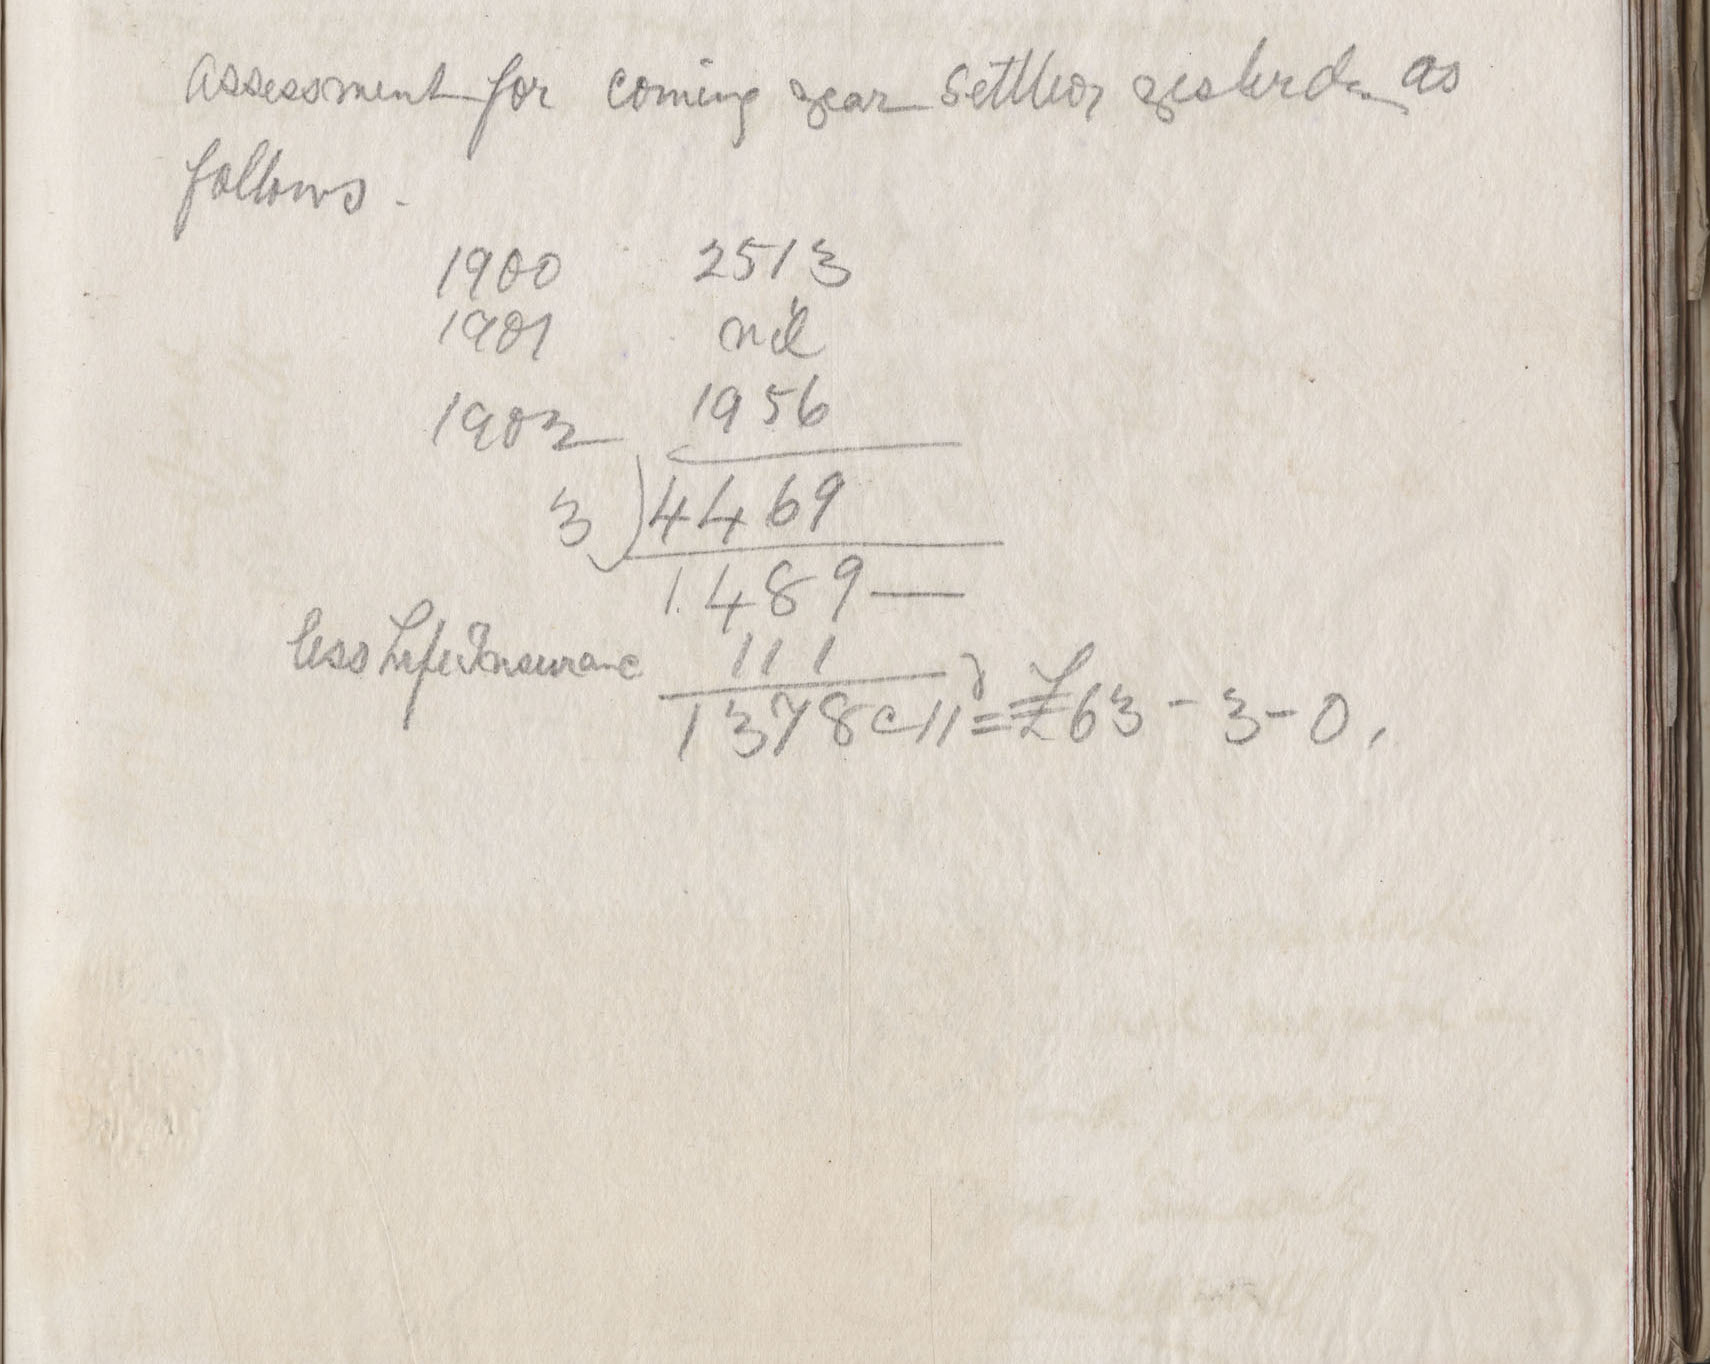 assessment for coming year settled yesterday as
follows.
1900 2513
1901 nil
1902 1956
3 ) 4469
1489 —
less Life Insurance 111
1378 @ 11d = £63 - 3 - 0.